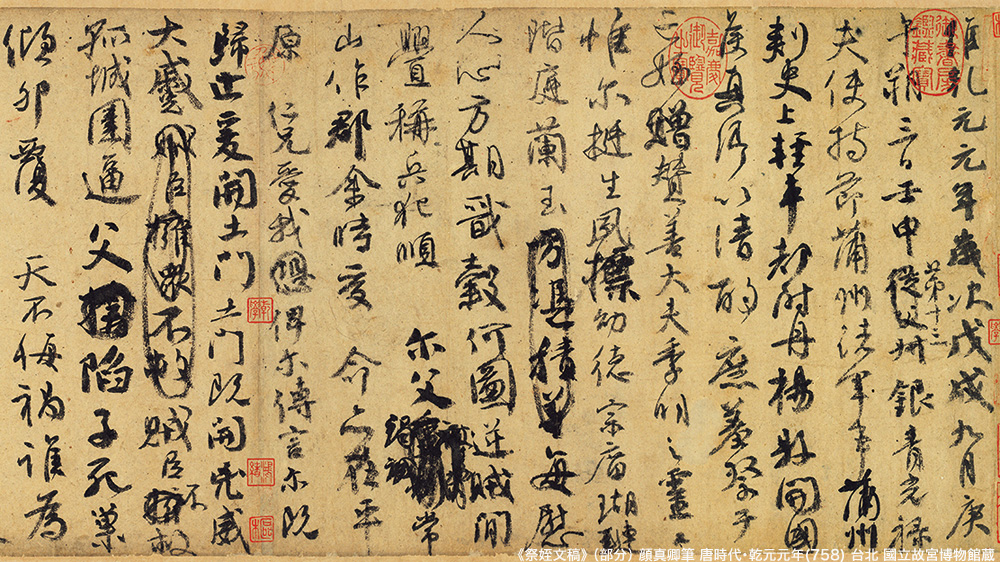 維乾元元年歲次戊戌九月庚
午朔三日壬申第十三從父叔銀青光祿
夫使持節蒲州諸軍事蒲州
刺史上輕車都尉丹楊縣開國
侯真卿以清酌庶羞祭于
亡姪贈贊善大夫季明之靈曰
惟爾挺生夙標幼德宗廟瑚璉
階庭蘭玉方憑積善每慰
人心方期戩穀何圖逆賊閒
釁稱兵犯順爾父竭誠常
山作郡余時受命亦在平
原仁兄愛我恐俾爾傳言爾既
歸止爰開土門土門既開凶威
大蹙賊臣擁眾不救賊臣不救
孤城圍逼父陷子死巢
傾卵覆天不悔禍誰為
嘉慶御覽之寶
御書房鑒藏寶
《祭姪文稿》（部分） 顔真卿筆 唐時代・乾元元年(758) 台北 國立故宮博物館蔵